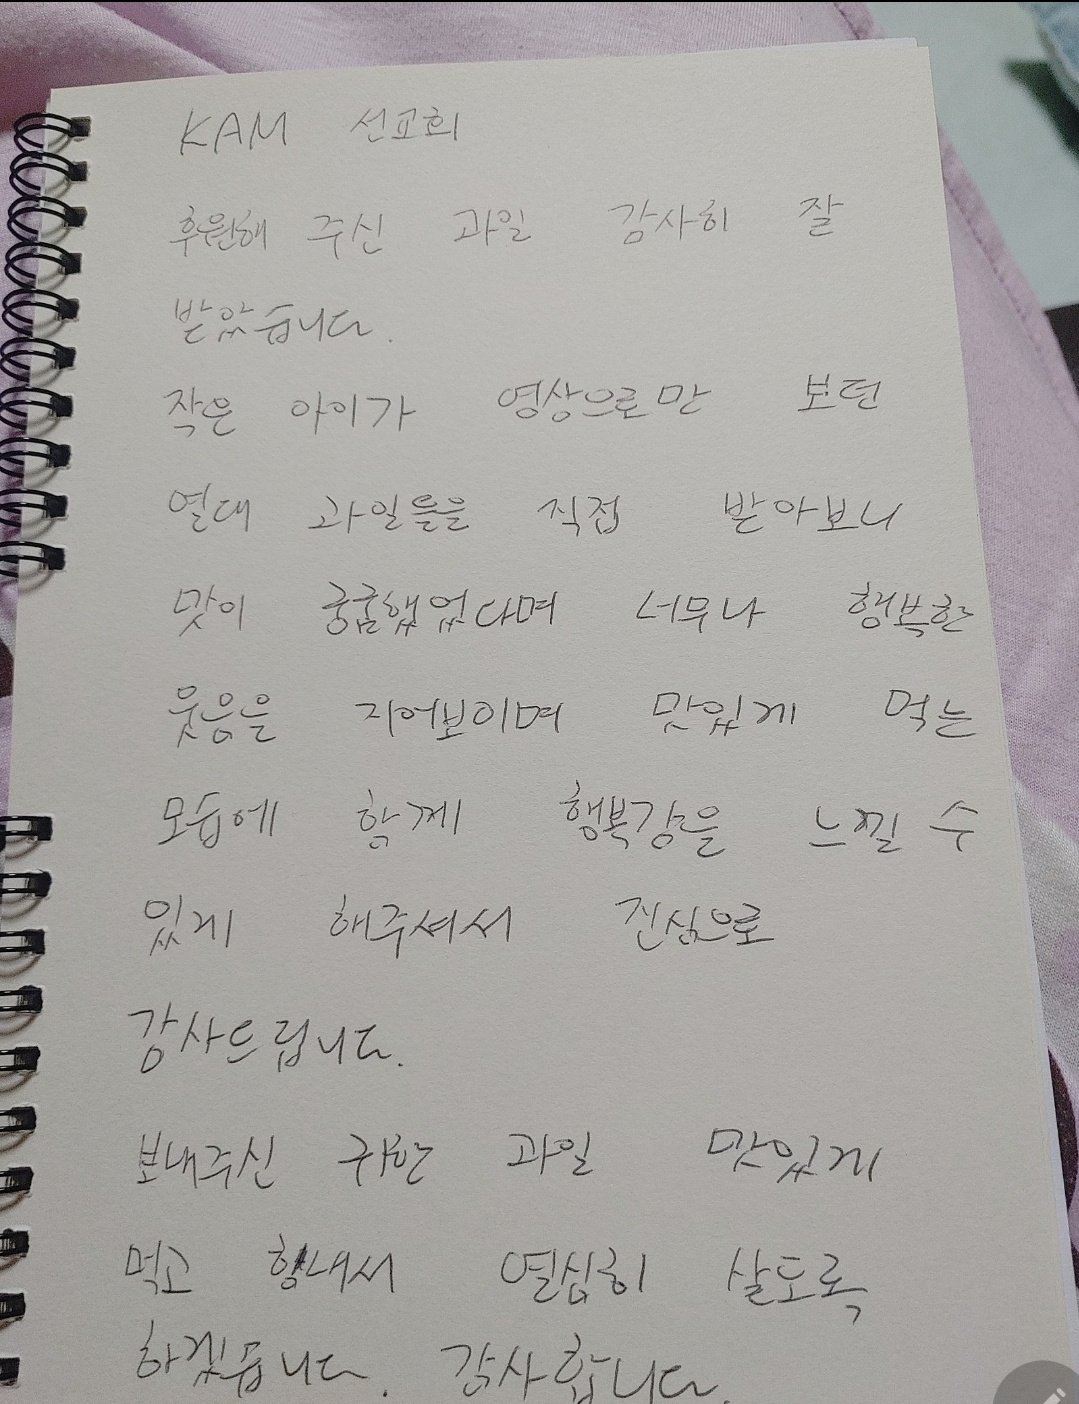 KAM 선교회
후원해 주신 과일 감사히 잘
받았습니다.
작은 아이가 영상으로만 보던
열대 과일들을 직접 받아보니
맛이 궁굼했었다며 너무나 행복한
웃음을 지어보이며 맛있게 먹는
모습에 함께 행복감을 느낄 수
있게 해주셔서 진심으로
감사드립니다.
보내주신 귀한 과일 맛있게
먹고 힘내서 열심히 살도록
하겠습니다. 감사합니다.